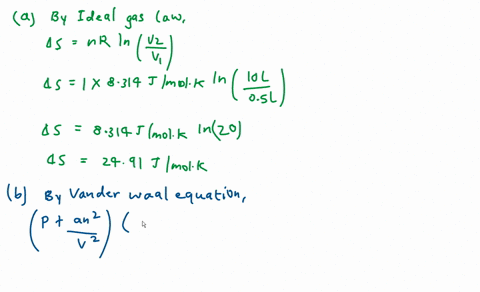 (a) By Ideal gas law,
ΔS = nR ln (V2/V1)
ΔS = 1 × 8.314 J/mol.K ln (10L/0.5L)
ΔS = 8.314 J/mol.K ln(20)
ΔS = 24.91 J/mol.K
(b) By Vander waal equation,
(P + an²/V²) (